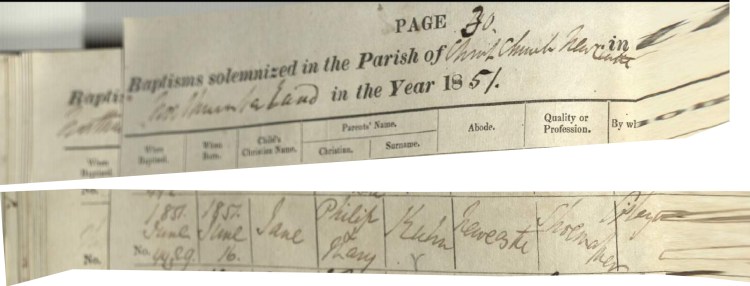 PAGE 30.
Baptisms solemnized in the Parish of Christ Church Newcastle in
Northumberland in the Year 1851.
Baptis
When Baptized.
When Born.
Child's Christian Name.
Parents' Name.
Christian.
Surname.
Abode.
Quality or Profession.
By wh
No.
1851 June
No.
1851 June 16.
Jane
Philip
Mary
Kuhn
Newcastle
Shoemaker
No.